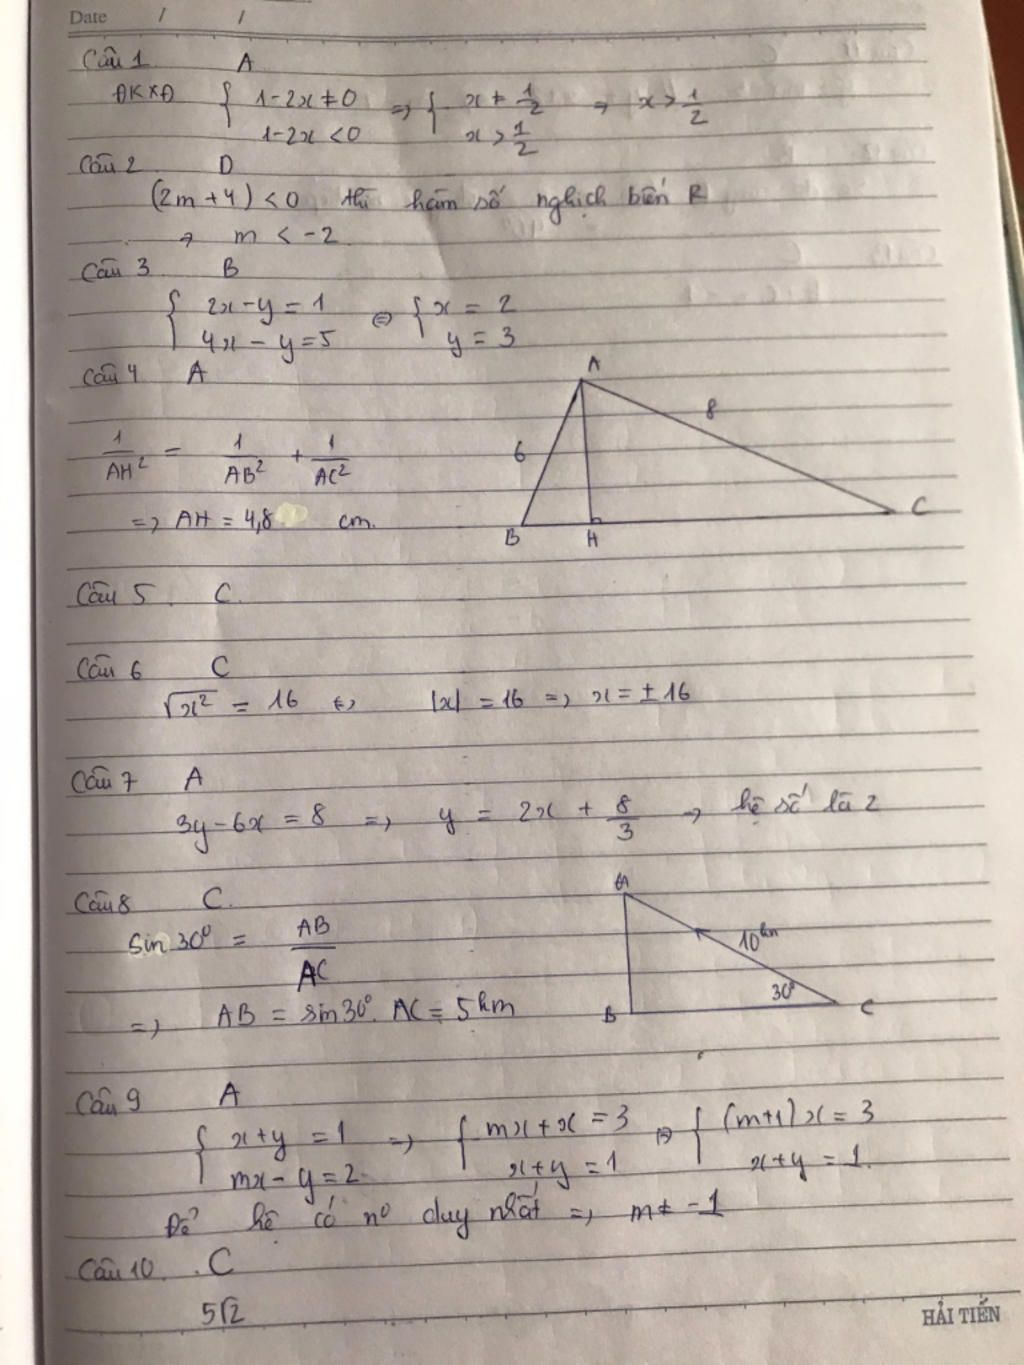 Date / /
Câu 1 A
ĐKXĐ { 1-2x ≠ 0 => { x ≠ 1/2 => x > 1/2
1-2x < 0 x > 1/2
Câu 2 D
(2m+4) < 0 thì hàm số nghịch biến R
=> m < -2
Câu 3 B
{ 2x-y = 1 <=> { x = 2
4x - y = 5 y = 3
Câu 4 A
1/AH² = 1/AB² + 1/AC²
=> AH = 4,8 cm.
A
6
8
B H C
Câu 5 C.
Câu 6 C
√x² = 16 <=> |x| = 16 => x = ±16
Câu 7 A
3y-6x = 8 => y = 2x + 8/3 -> hệ số là 2
Câu 8 C.
sin 30° = AB/AC
=> AB = sin 30°. AC = 5km
A
10km
30°
B C
Câu 9 A
{ x+y = 1 => { mx+x = 3 <=> { (m+1)x = 3
mx-y = 2 x+y = 1 x+y = 1.
Để hệ có n° duy nhất => m ≠ -1
Câu 10. C
5√2
HẢI TIẾN